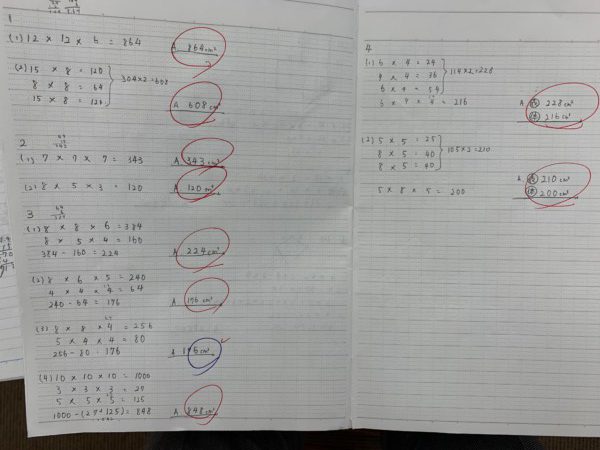 1
(1) 12 × 12 × 6 = 864
A 864cm³
(2) 15 × 8 = 120
8 × 8 = 64
15 × 8 = 120
304×2=608
A 608cm²
2
(1) 7 × 7 × 7 = 343
A 343cm³
(2) 8 × 5 × 3 = 120
A 120cm³
3
(1) 8 × 8 × 6 = 384
8 × 5 × 4 = 160
384 - 160 = 224
A 224cm³
(2) 8 × 6 × 5 = 240
4 × 4 × 4 = 64
240 - 64 = 176
A 176cm³
(3) 8 × 8 × 4 = 256
5 × 4 × 4 = 80
256 - 80 = 176
A 176cm³
(4) 10 × 10 × 10 = 1000
3 × 3 × 3 = 27
5 × 5 × 5 = 125
1000 - (27+125) = 848
A 848cm³
4
(1) 6 × 4 = 24
9 × 4 = 36
6 × 9 = 54
114×2=228
6 × 9 × 4 = 216
A 228cm²
216cm³
(2) 5 × 5 = 25
8 × 5 = 40
8 × 5 = 40
105×2=210
5 × 8 × 5 = 200
A 210cm²
200cm³